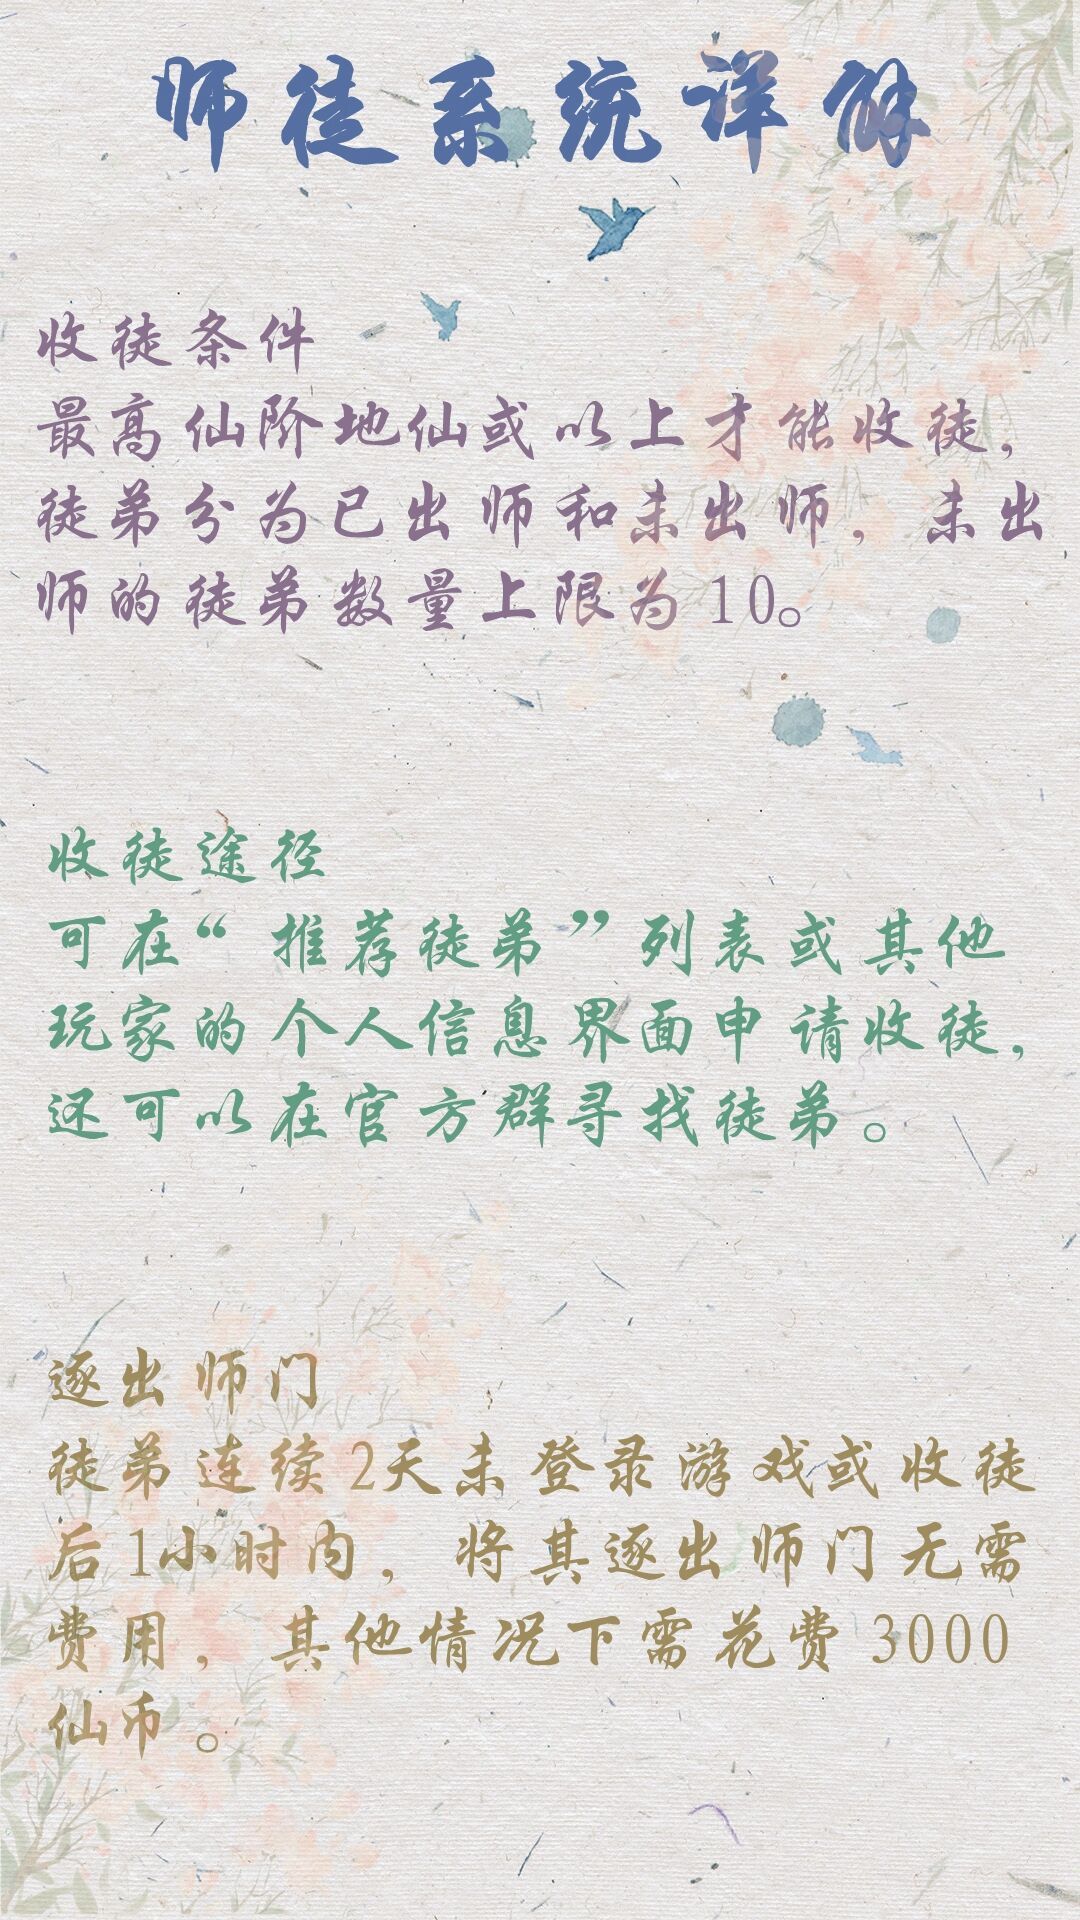 师徒系统详解
收徒条件
最高仙阶地仙或以上才能收徒，
徒弟分为已出师和未出师，未出
师的徒弟数量上限为10。
收徒途径
可在“推荐徒弟”列表或其他
玩家的个人信息界面申请收徒，
还可以在官方群寻找徒弟。
逐出师门
徒弟连续2天未登录游戏或收徒
后1小时内，将其逐出师门无需
费用，其他情况下需花费3000
仙币。